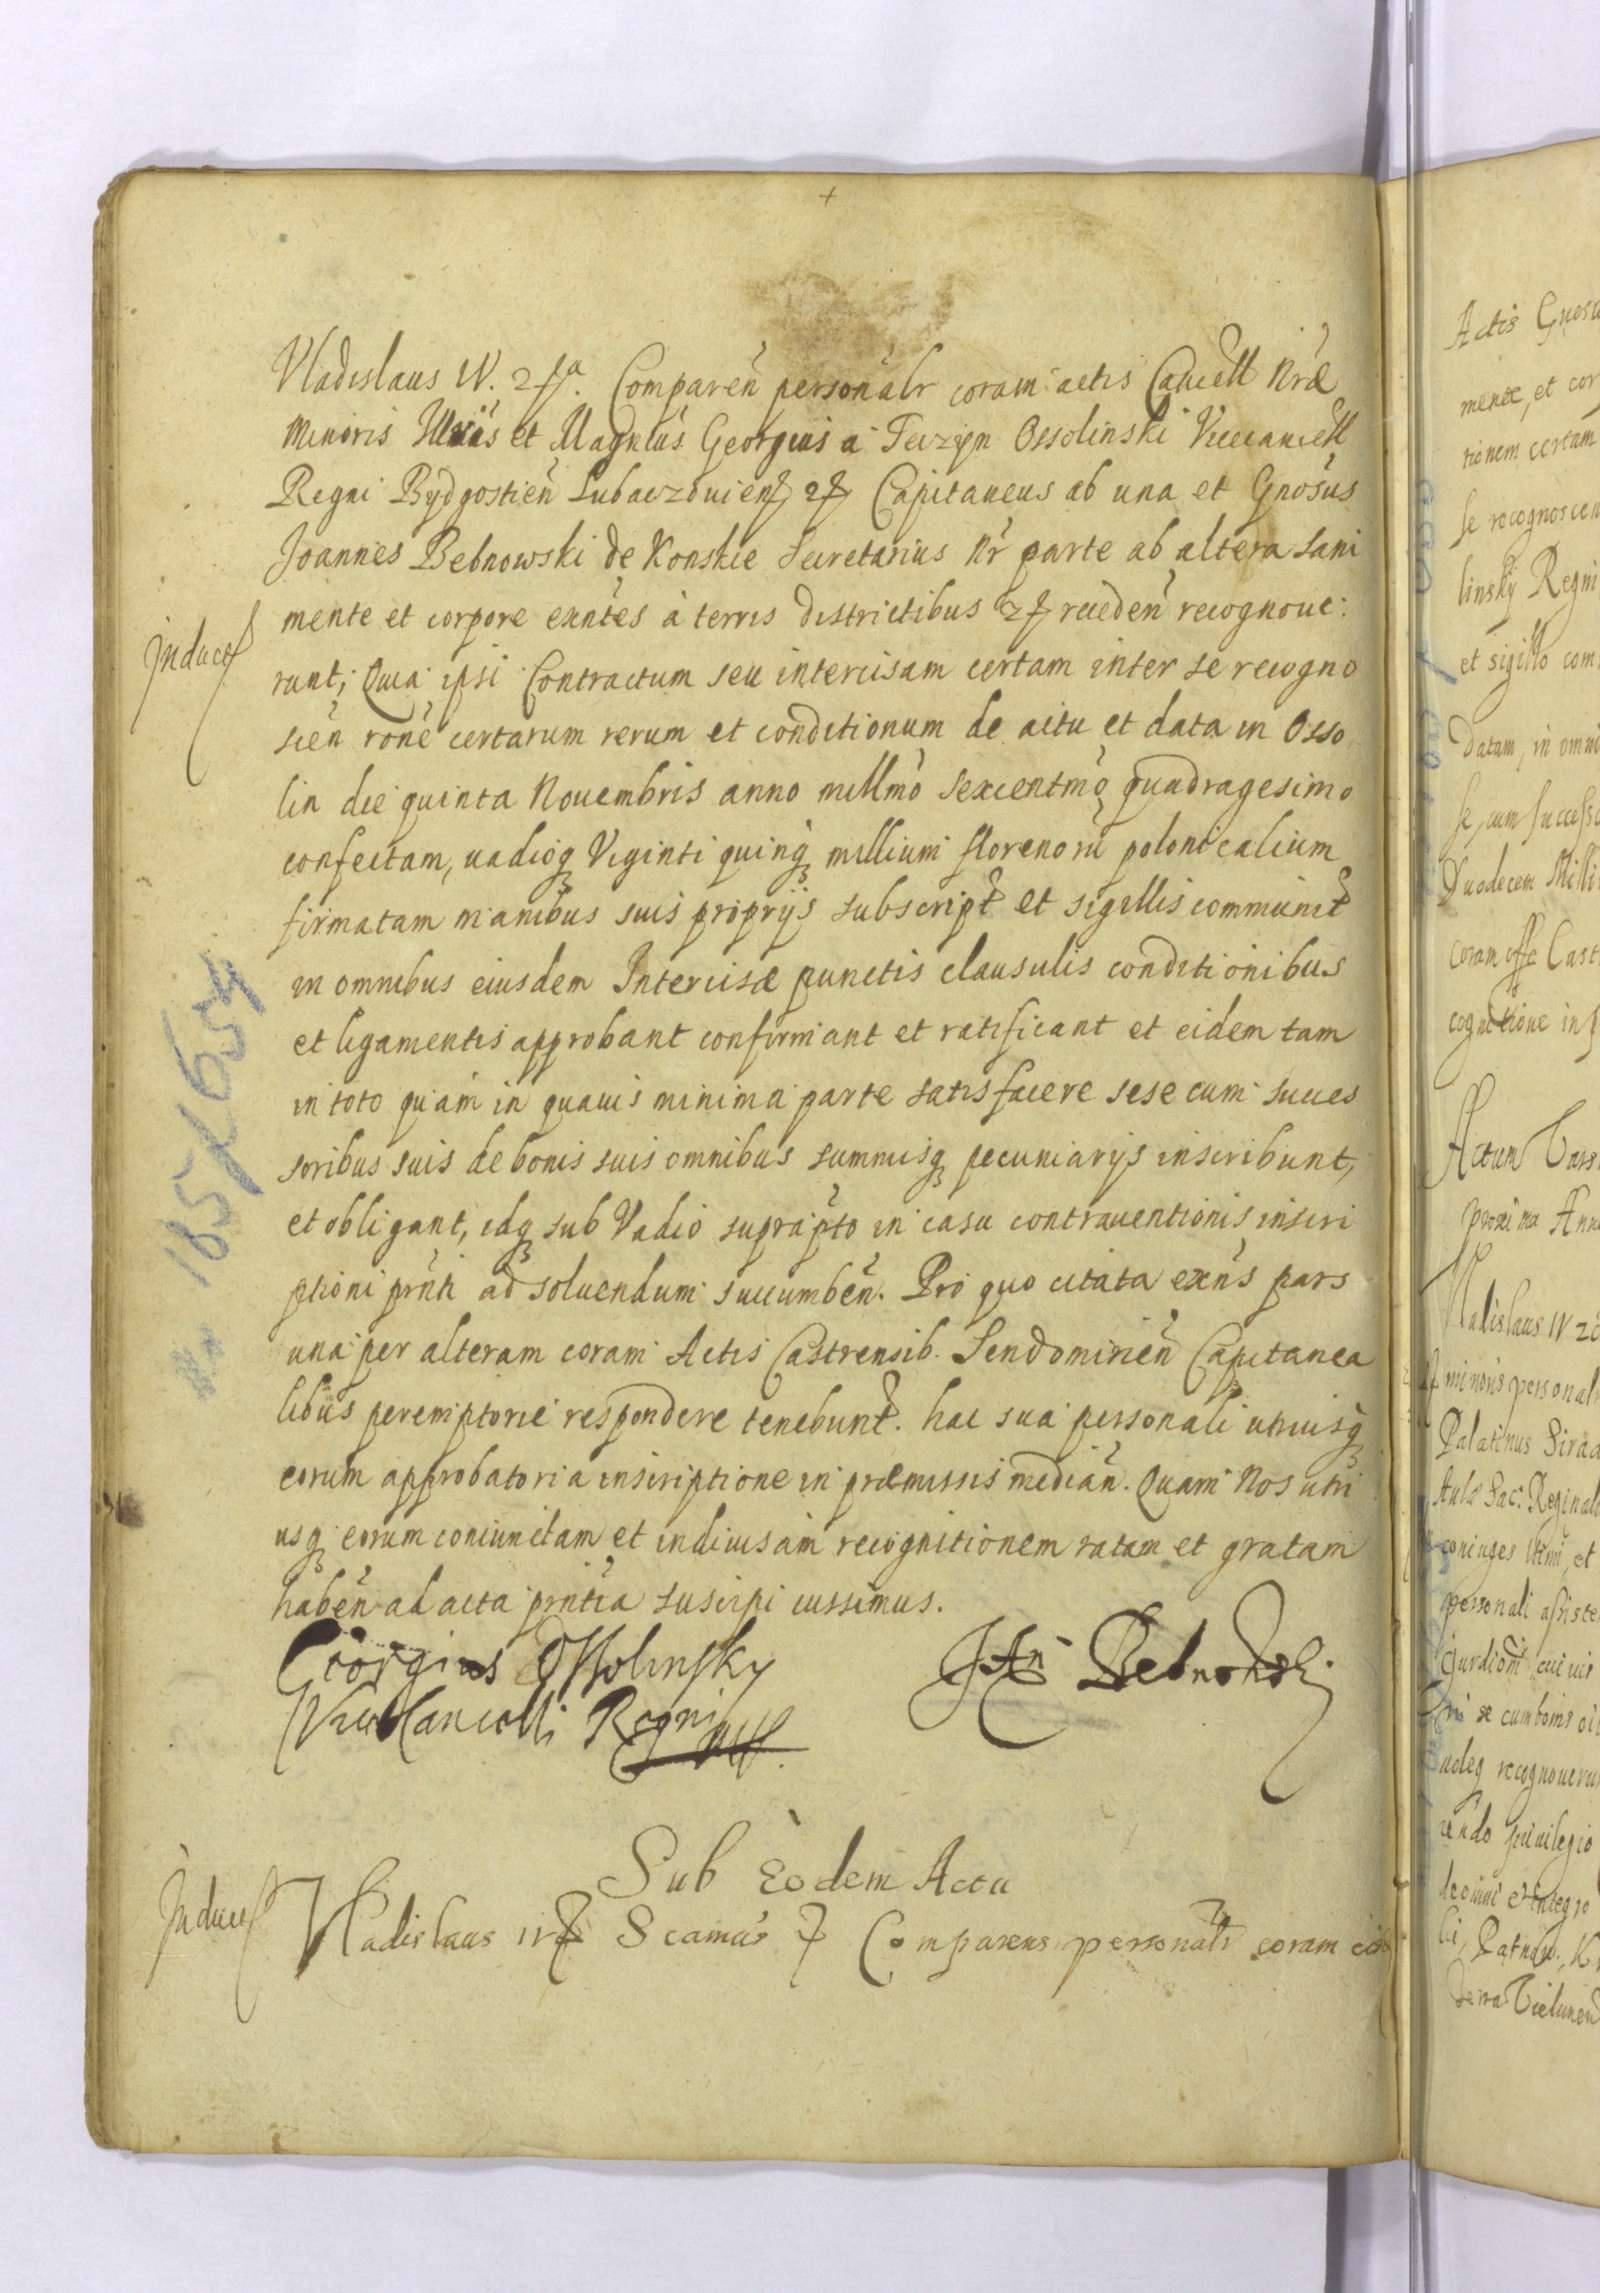 Vladislaus IV. Comparen̄ personalr coram actis Cancell Nrae
Minoris Illris et Magnius Georgius à Teczyn Ossolinski Vicecancell
Regni Bydgostien̄ Lubaczouien Capitaneus ab una et Gnosus
Joannes Bebnowski de Konskie Secretarius Nr parte ab altera sani
mente et corpore exn̄tes à terris districtibus receden̄ recognoue:
runt; Quia ipsi Contractum seu intercisam certam inter se recogno
scen̄ rōne certarum rerum et conditionum de actu et data in Osso
lin die quinta Nouembris anno millmo sexcentmo quadragesimo
confectam, uadioq Viginti quinq millium florenorū polonicalium
firmatam manibus suis proprijs subscript et sigillis communit
in omnibus eiusdem Intercisae punctis clausulis conditionibus
et ligamentis approbant confirmant et ratificant et eidem tam
in toto quàm in quauis minima parte satisfacere sese cum succes
soribus suis de bonis suis omnibus summisq pecuniarijs inscribunt,
et obligant, idq sub Vadio suprapto in casu contrauentionis inscri
ptioni prn̄ti ad soluendum succumben̄. Pro quo citata exn̄s pars
una per alteram coram Actis Castrensib. Sendomirien̄ Capitanea
libus peremptorie respondere tenebunt. hac sua personali utriusq
eorum approbatoria inscriptione in praemissis median̄. Quam Nos utri
usq eorum coniunctam et indiuisam recognitionem ratam et gratam
haben̄ ad acta prn̄tia suscipi iussimus.
Georgius Ossolinsky
ViceCancelli Regni mp.
Jan Bebnowski
Sub Eodem Actu
Vladislaus IV Comparens personalr coram
Induct
Induct
185 / 654
Actis Gnosu
mente, et cor
tionem certam
se recognoscen
linsky Regni
et sigillo com
datam, in omni
se, cum successo
Duodecem Milli
coram off̄o Cast
cognitione ins
Actum Vars
proxima Ann
Vladislaus IV
minoris personalr
Palatinus Sirad
Aulae Sac: Reginal
coniuges et
personali assiste
se cum bonis
recognouerun
priuilegio
integro
terra Vielunen